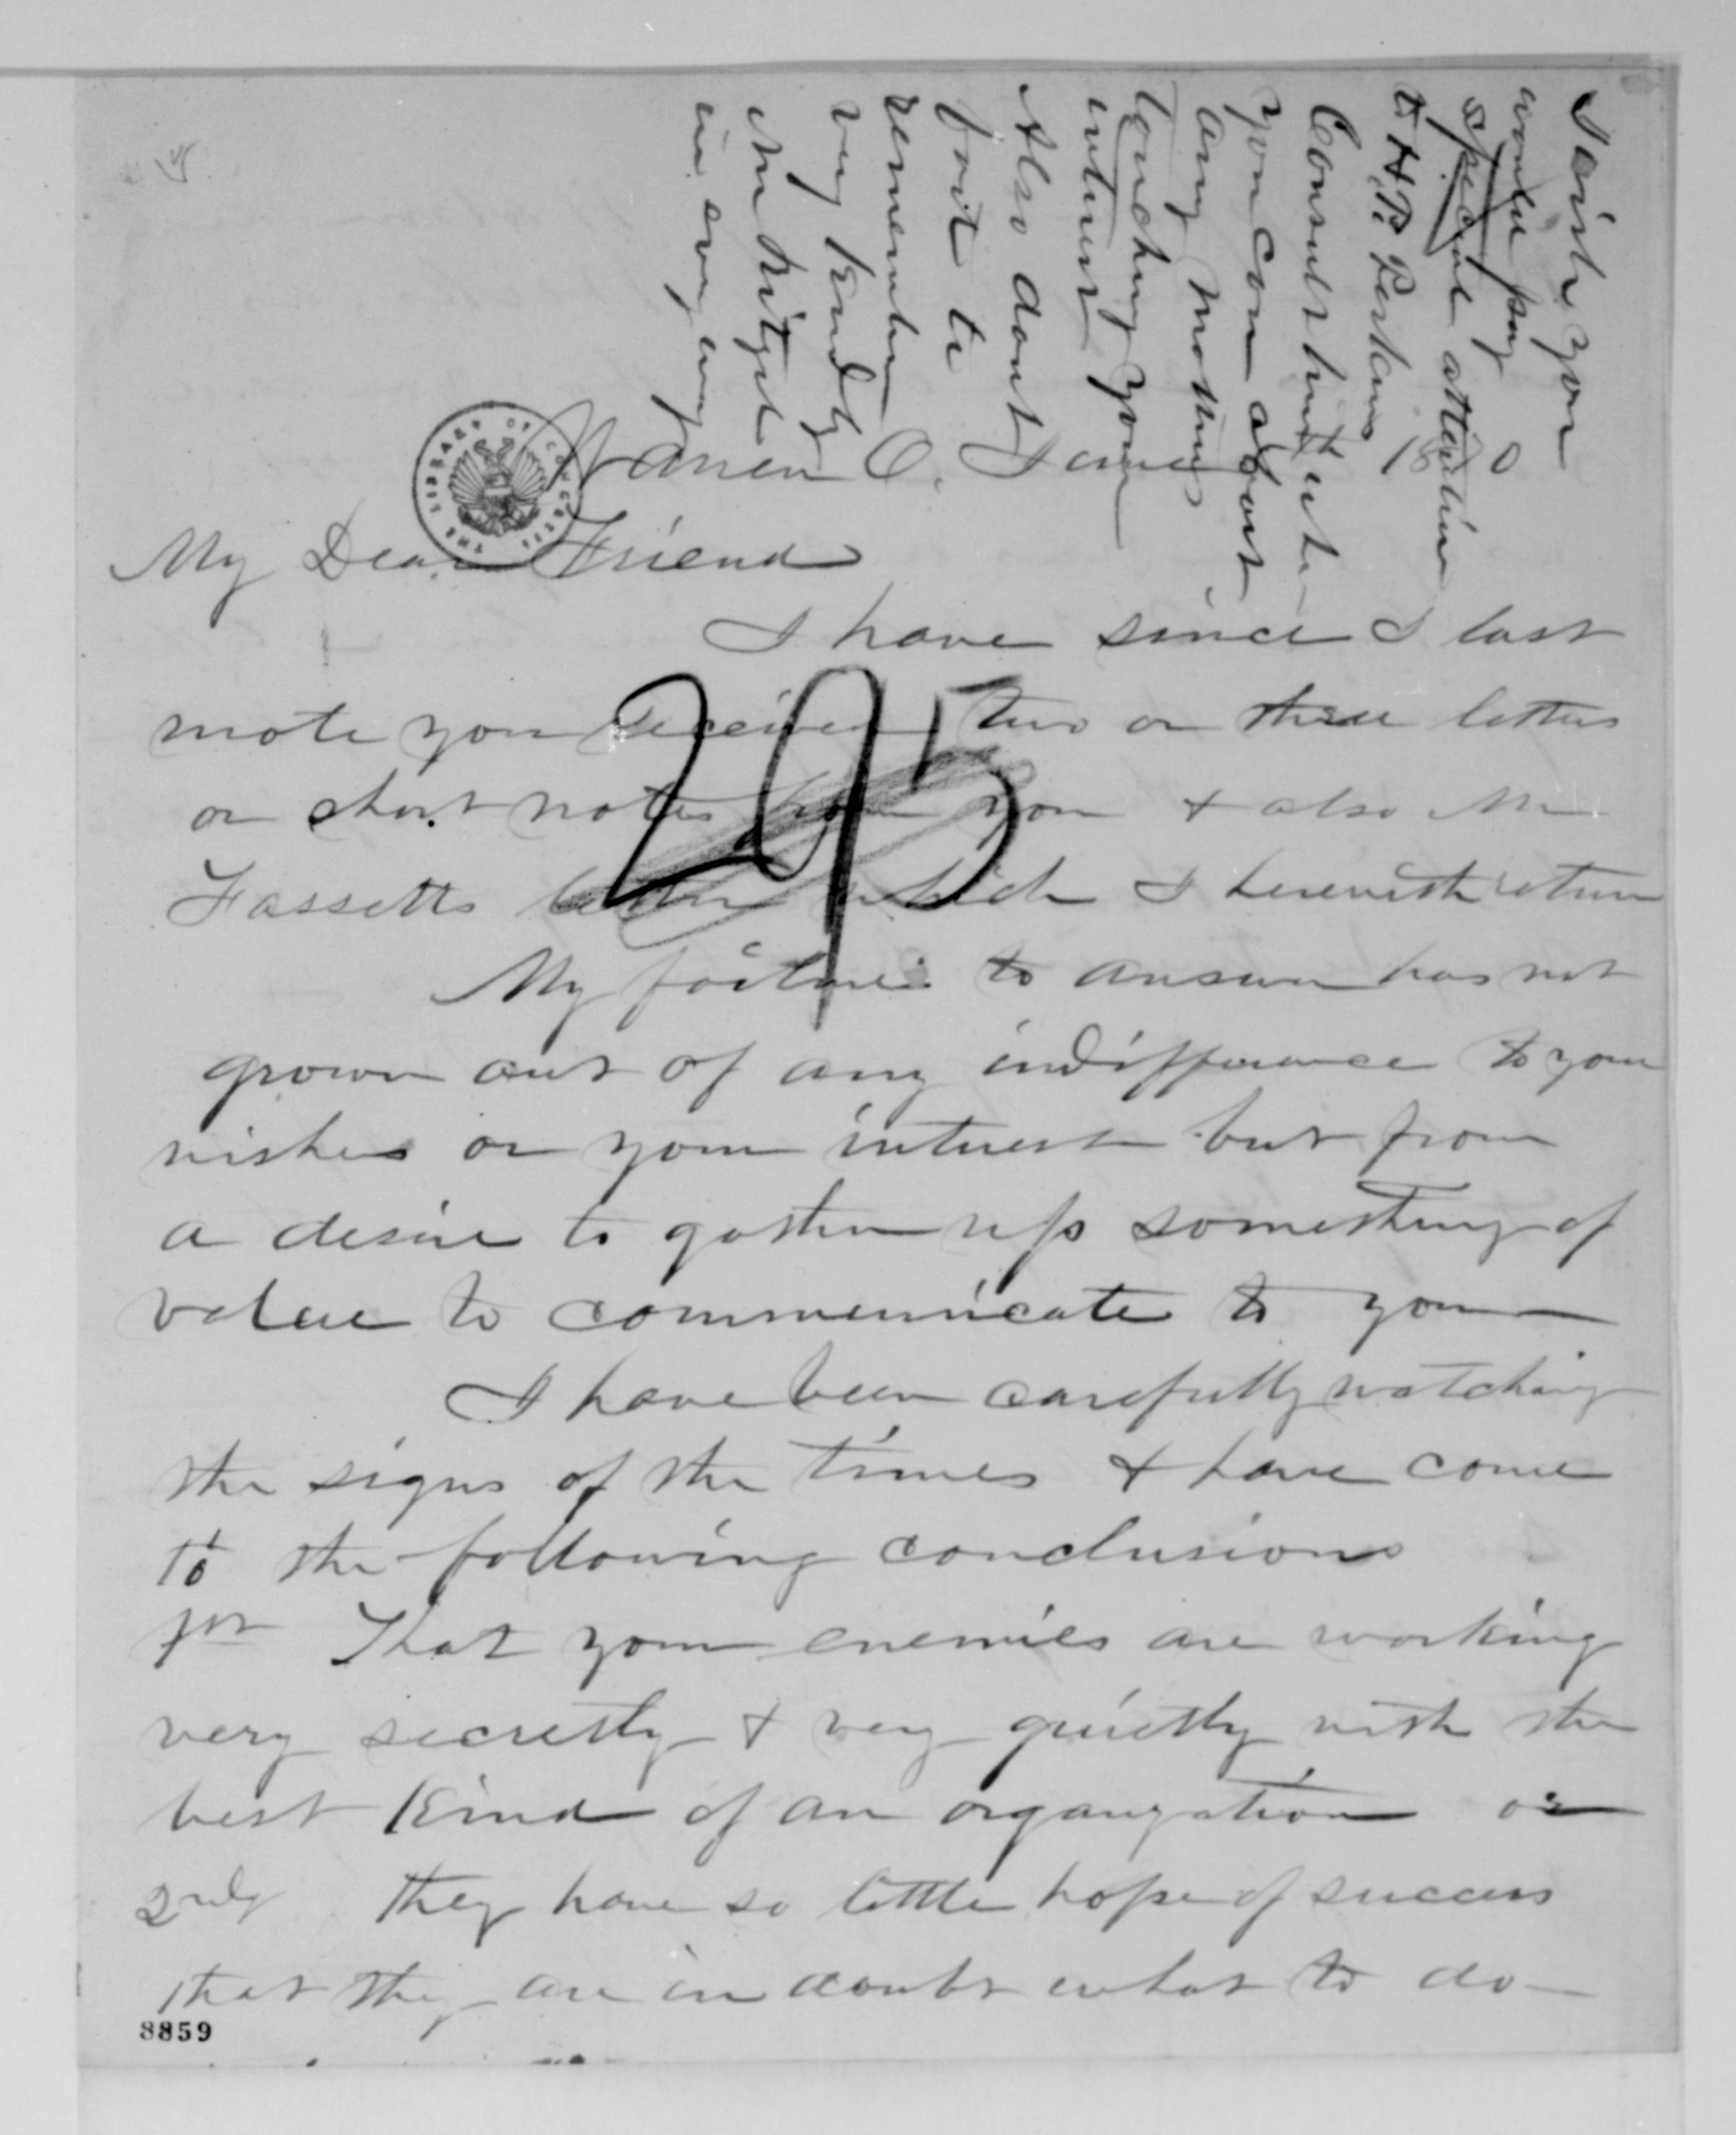 I wish you
would pay
special attention
to H. B. Perkins
Consult him with
you can about
any matters
touching your
interest
Also dont
fail to
remember
very kindly
in every way
Warren O. June 18 0
My Dear Friend
I have since I last
wrote you received two or three letters
or short notes from you & also Mr
Fassetts letter which I herewith return
My failure to answer has not
grown out of any indifference to your
wishes or your interest but from
a desire to gather up something of
value to communicate to you
I have been carefully watching
the signs of the times & have come
to the following conclusions
1st That your enemies are working
very secretly & very quietly with the
best kind of an organization or
2ndly they have so little hope of success
that they are in doubt what to do
295
THE LIBRARY OF CONGRESS
8859